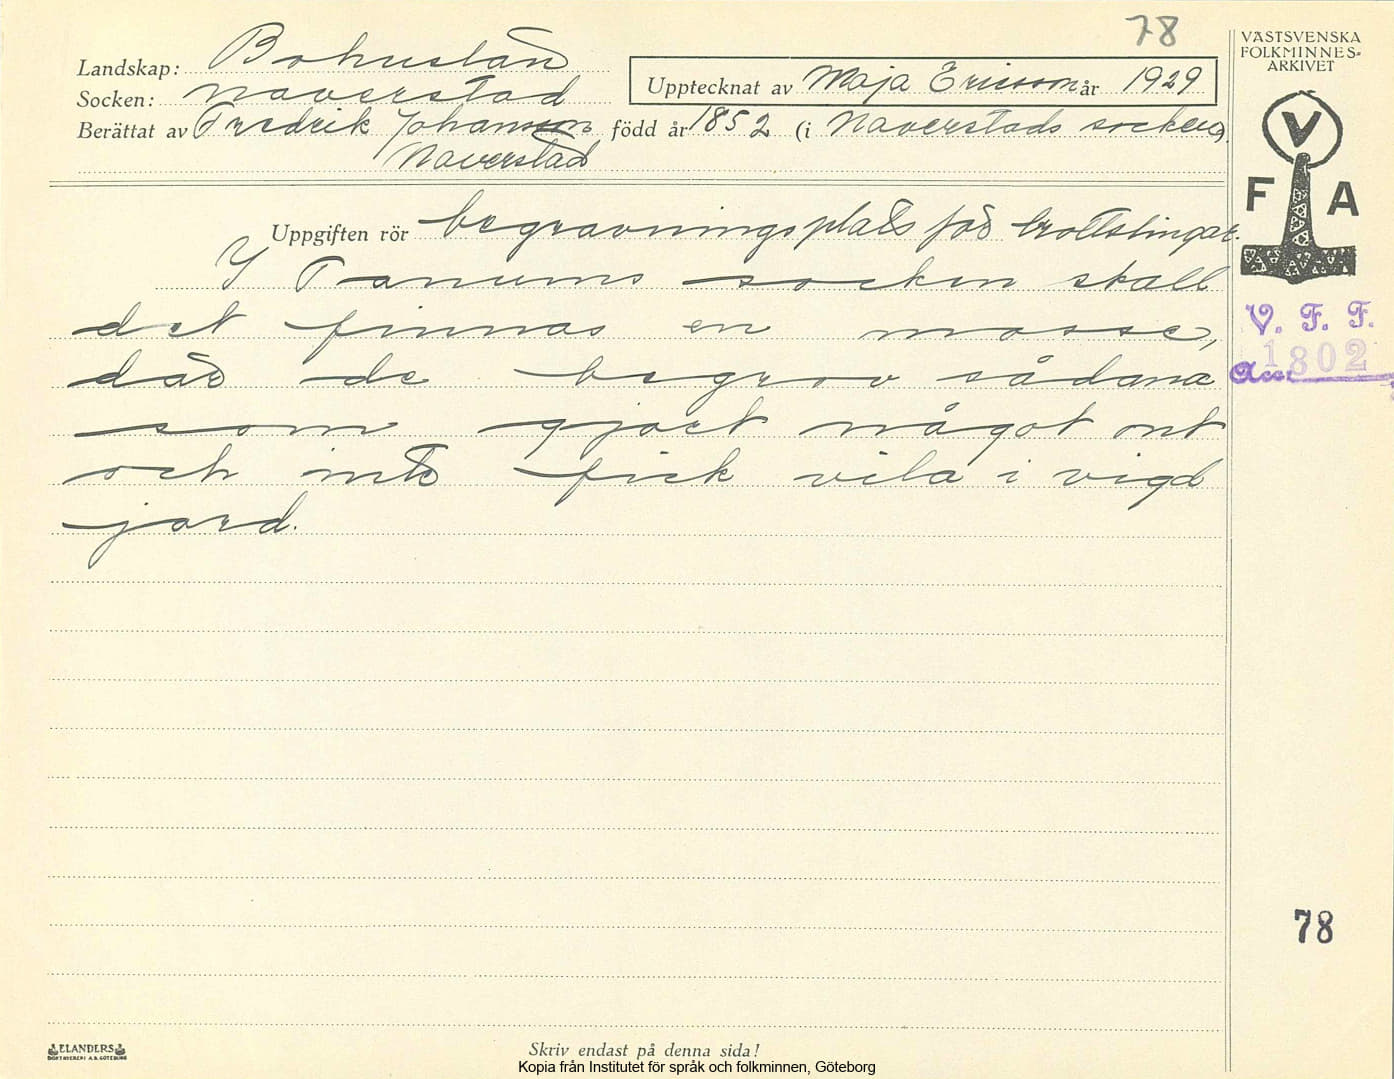 78
Landskap: Bohuslän
Socken: Naverstad
Upptecknat av Maja Ericson år 1929
Berättat av Fredrik Johansson född år 1852 (i Naverstads socken).
Naverstad
VÄSTSVENSKA
FOLKMINNES-
ARKIVET
V
F A
Uppgiften rör begravningsplats för brottslingar.
I Tanums socken skall
det finnas en mosse,
där de begrov sådana
som gjort något ont
och inte fick vila i vigd
jord.
V. F. F.
Acc. 1802
78
ELANDERS
BOKTRYCKERI A.B. GÖTEBORG
Skriv endast på denna sida!
Kopia från Institutet för språk och folkminnen, Göteborg